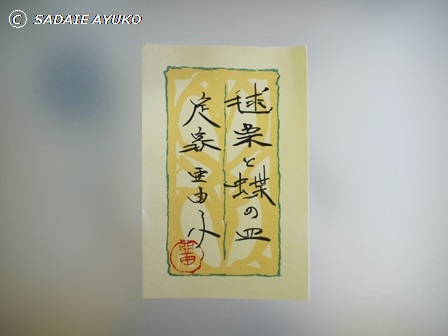 © SADAIE AYUKO
毬栗と蝶の皿
定家 亜由子
亜由